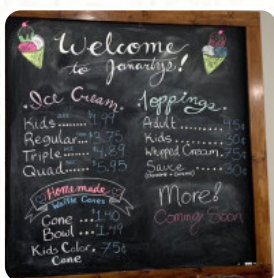 Welcome
to Janarlys!
Ice Cream.
Kids........$1.99
Regular...$3.75
Triple.....$4.89
Quad......$5.95
Homemade
Waffle Cones
Cone ...$1.40
Bowl ...$1.49
Kids Color. 75¢
Cone
Toppings.
Adult.........95¢
Kids..........50¢
Whipped Cream.75¢
Sauce .....30¢
More!
Coming Soon